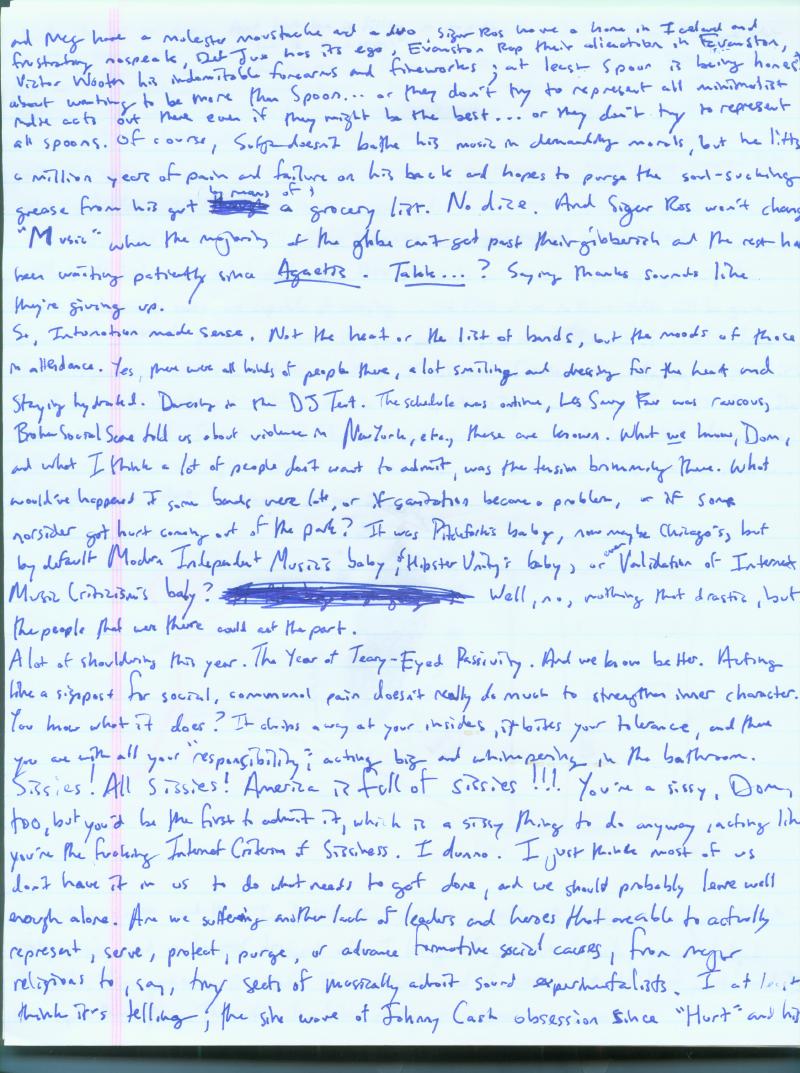 and Meg have a molester moustache and a duo, Sigur Ros have a home in Iceland and
frustrating nospeak, Def Jux has its ego, Evanston Rap their alienation in Evanston,
Victor Wooten his indomitable forearms and fireworks; at least Spoon is being honest
about wanting to be more than Spoon... or they don't try to represent all minimalist
indie acts out there even if they might be the best... or they don't try to represent
all spoons. Of course, Sufjan doesn't bathe his music in demanding morals, but he lifts
a million years of pain and failure on his back and hopes to purge the soul-sucking
grease from his gut by means of a grocery list. No dice. And Sigur Ros won't change
"Music" when the majority of the globe can't get past their gibberish and the rest ha
been waiting patiently since Agaetis. Takk...? Saying thanks sounds like
they're giving up.
So, Intonation made sense. Not the heat or the list of bands, but the moods of those
in attendance. Yes, there were all kinds of people there, a lot smiling and dressing for the heat and
staying hydrated. Dancing in the DJ Tent. The schedule was ontime, Les Savy Fav was raucous,
Broken Social Scene told us about violence in New York, etc., these are known. What we know, Dom,
and what I think a lot of people don't want to admit, was the tension brimming there. What
would've happened if some bands were late, or if sanitation became a problem, or if some
norsider got hurt coming out of the park? It was Pitchfork's baby, now maybe Chicago's, but
by default Modern Independent Music's baby, & Hipster Unity's baby, or even Validation of Internet
Music Criticism's baby? Well, no, nothing that drastic, but
the people that were there could act the part.
A lot of shouldering this year. The Year of Teary-Eyed Passivity. And we know better. Acting
like a signpost for social, communal pain doesn't really do much to strengthen inner character.
You know what it does? It chips away at your insides, it bites your tolerance, and there
you are with all your "responsibility", acting big and whimpering in the bathroom.
Sissies! All Sissies! America is full of sissies!!! You're a sissy, Dom,
too, but you'd be the first to admit it, which is a sissy thing to do anyway, acting like
you're the fucking Internet Criterion of Sissiness. I dunno. I just think most of us
don't have it in us to do what needs to get done, and we should probably leave well
enough alone. Are we suffering another lack of leaders and heroes that are able to actually
represent, serve, protect, purge, or advance formative social causes, from major
religions to, say, tiny sects of musically adroit sound experimentalists. I at least
think it's telling; the sine wave of Johnny Cash obsession since "Hurt" and his